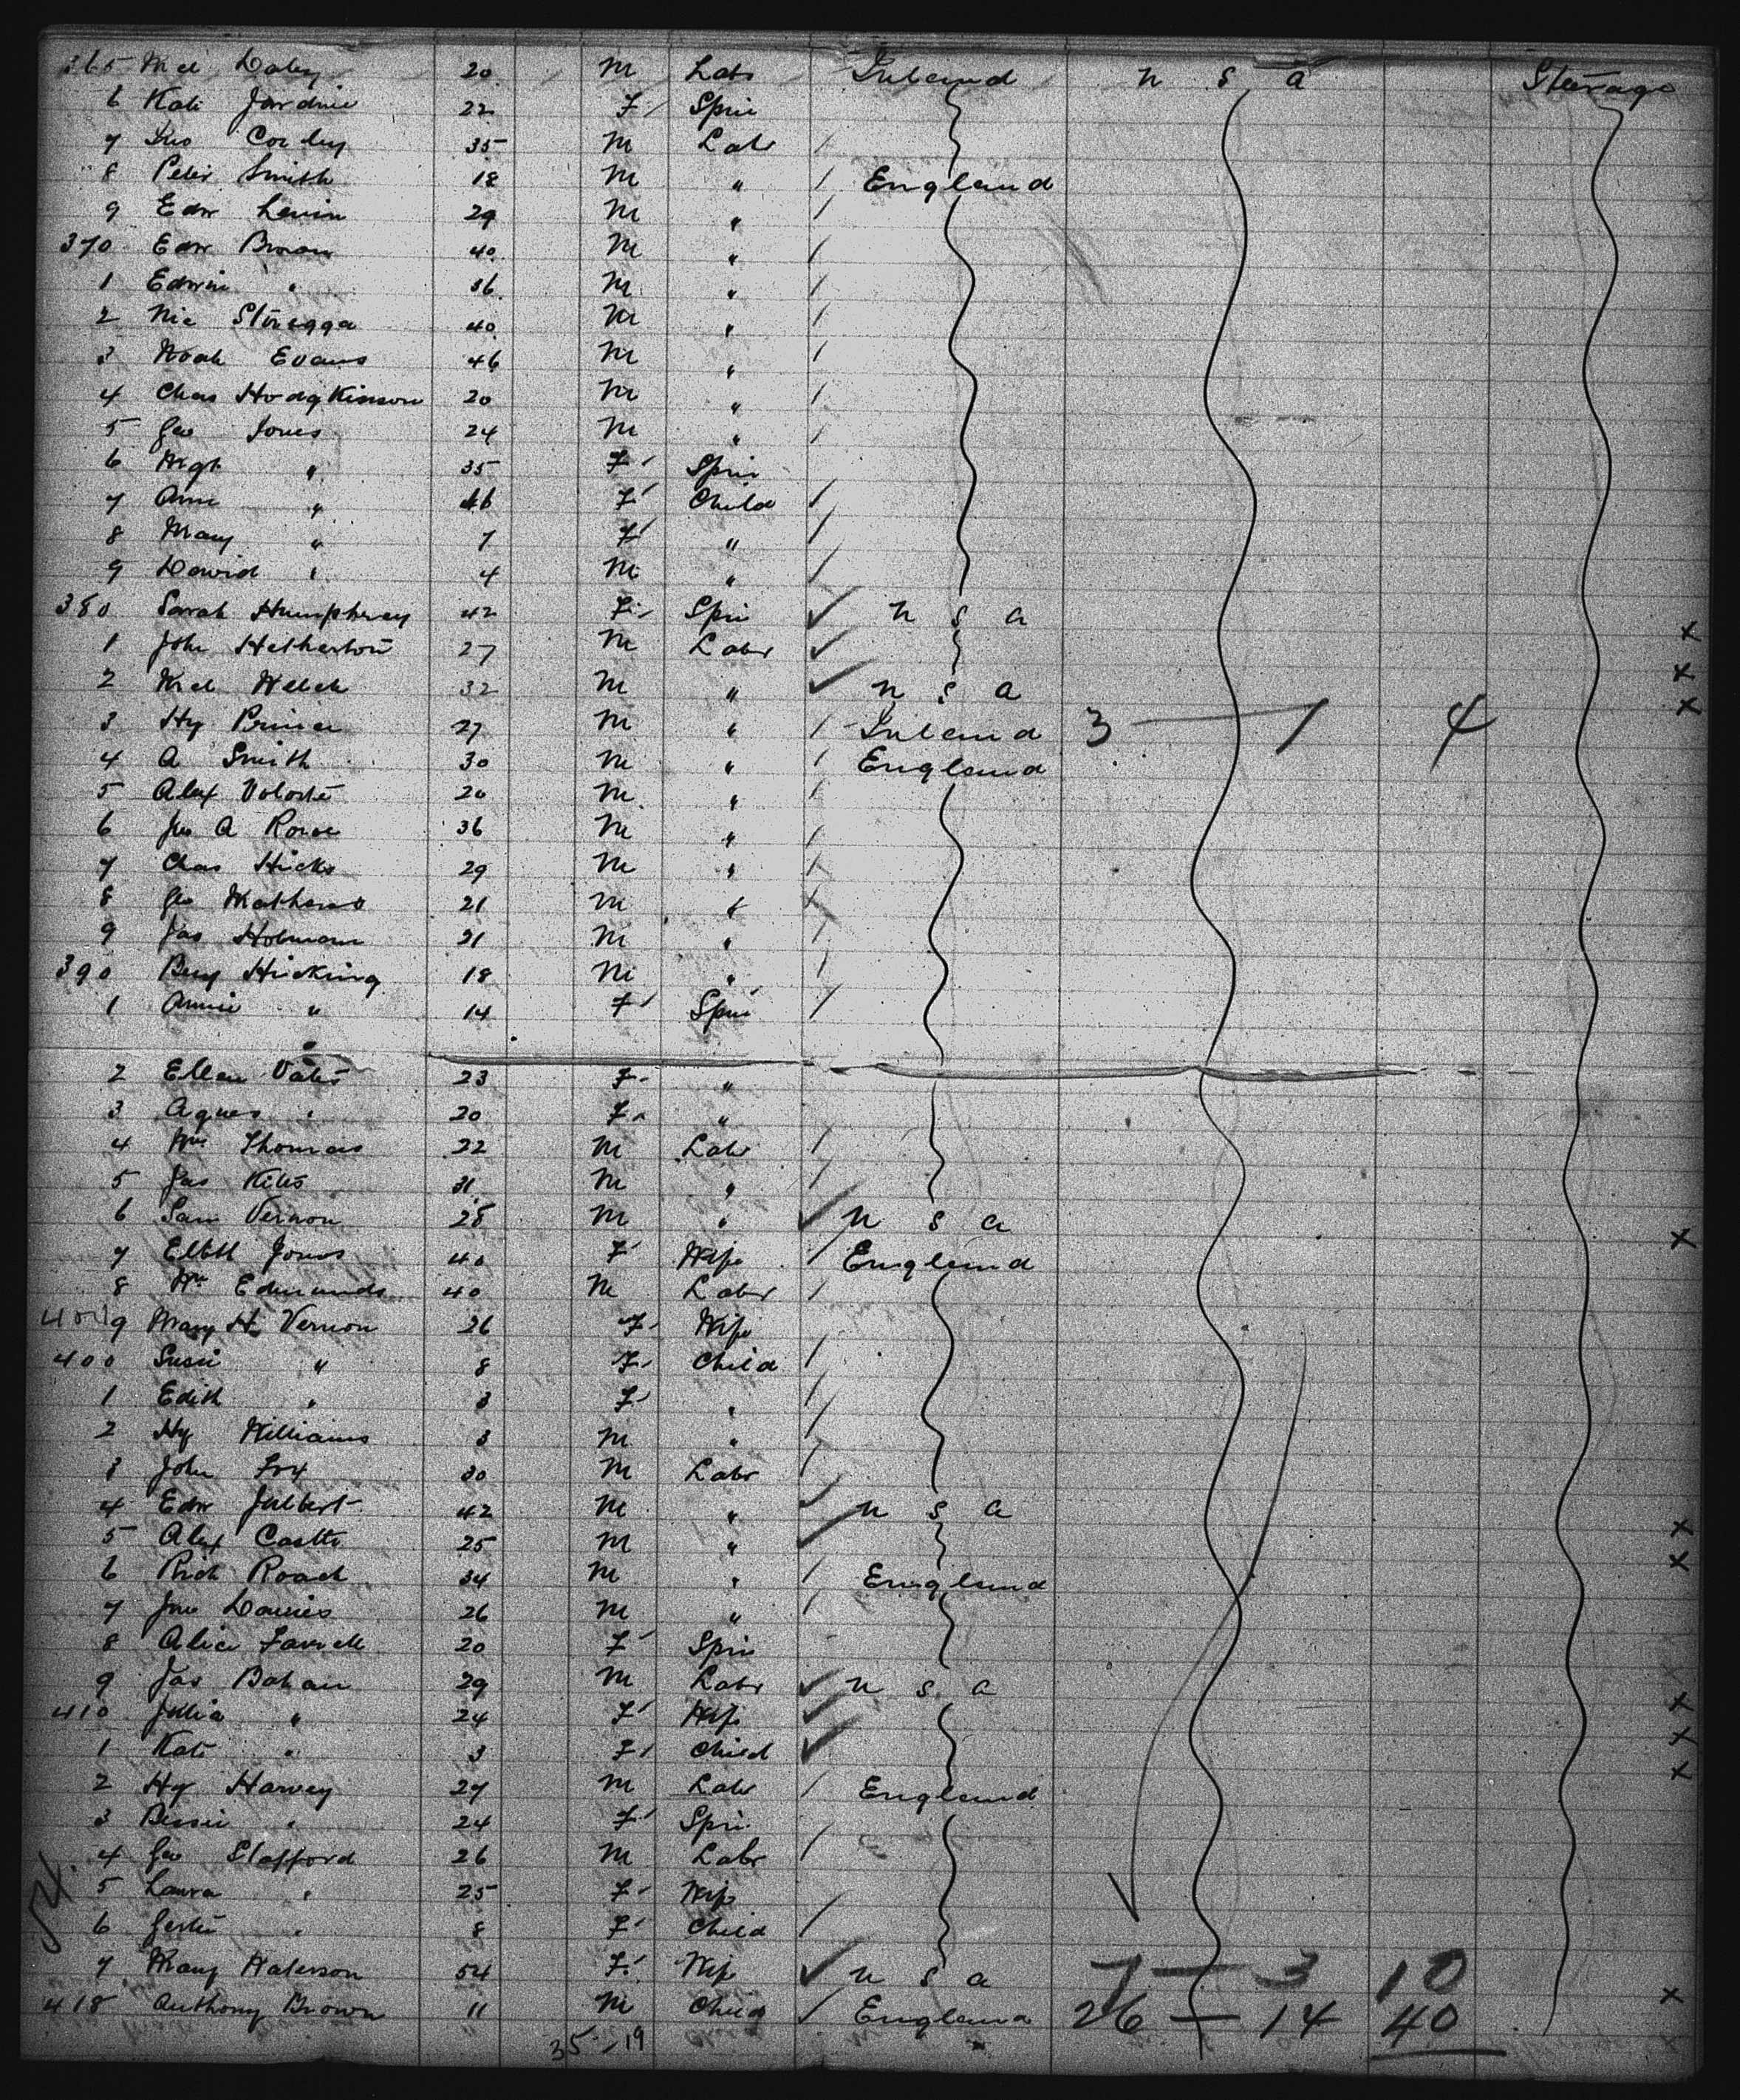 365 Mcl Daley 20 M Labr Ireland U S A Steerage
6 Kate Jardine 22 F Spin
7 Jno Conley 35 M Labr
8 Peter Smith 18 M " England
9 Edw Levin 29 M "
370 Edw Brown 40 M "
1 Edwin " 16 M "
2 Nic 40 M "
3 Noah Evans 46 M "
4 Chas Hodgkinson 20 M "
5 Geo Jones 24 M "
6 Mgt " 35 F Spin
7 Ann " F Child
8 Mary " 7 F "
9 David " 4 M "
380 Sarah Humphrey 42 F Spin U S A
1 John Hetherton 27 M Labr
2 Mcl Welch 32 M " U S A
3 Hy Prince 27 M " Ireland 3 — 1 4
4 A Smith 30 M " England
5 Alex 20 M "
6 Jno A Rowe 36 M "
7 Chas Hicks 29 M "
8 Geo 21 M "
9 Jas Holman 21 M "
390 Benj Hicking 18 M "
1 Annie " 14 F Spin
2 Ellen 23 F "
3 Agnes " 20 F "
4 Wm Thomas 22 M Labr
5 Jas 31 M "
6 Sam Vernon 28 M " U S A
7 Elbth Jones 40 F Wife England
8 Wm Edmunds 40 M Labr
9 Mary H Vernon 26 F Wife
400 Susie " 8 F Child
1 Edith " 3 F "
2 Hy Williams 3 M "
3 John Fox 30 M Labr
4 Edw 42 M " U S A
5 Alex 25 M "
6 Rich Roach 34 M " England
7 Jno Davies 26 M "
8 Alice 20 F Spin
9 Jas Bohan 29 M Labr U S A
410 Julia " 24 F Wife
1 Kate " 3 F Child
2 Hy Harvey 27 M Labr England
3 Bessie " 24 F Spin
4 Geo Stafford 26 M Labr
5 Laura " 25 F Wife
6 Gertie " 8 F Child
7 Mary Waterson 54 F Wife U S A 7 — 3 10
418 Anthony Brown 11 M Child England 26 — 14 40
35 / 19